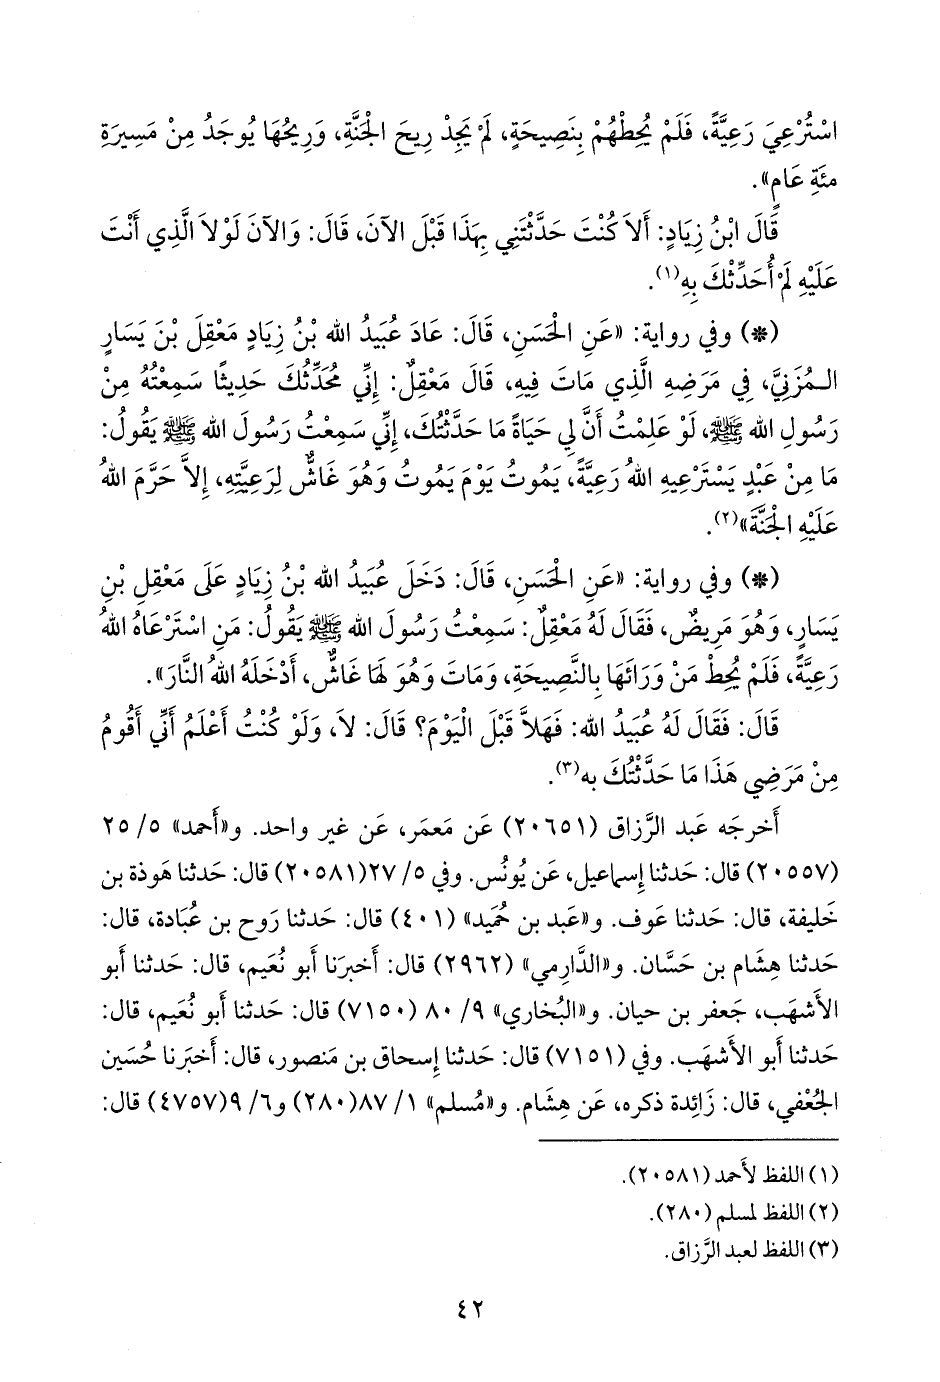 اسْتُرْعِيَ رَعِيَّةً، فَلَمْ يُحِطْهُمْ بِنَصِيحَةٍ، لَمْ يَجِدْ رِيحَ الْجَنَّةِ، وَرِيحُهَا يُوجَدُ مِنْ مَسِيرَةِ
مئَةِ عَامٍ».
قَالَ ابْنُ زِيَادٍ: أَلاَ كُنْتَ حَدَّثْتَنِي بِهَذَا قَبْلَ الآنَ، قَالَ: وَالآنَ لَوْلاَ الَّذِي أَنْتَ
عَلَيْهِ لَمْ أُحَدِّثْكَ بِهِ(١).
(*) وفي رواية: «عَنِ الْحَسَنِ، قَالَ: عَادَ عُبَيْدُ الله بْنُ زِيَادٍ مَعْقِلَ بْنَ يَسَارٍ
الـمُزَنِيَّ، فِي مَرَضِهِ الَّذِي مَاتَ فِيهِ، قَالَ مَعْقِلٌ: إِنِّي مُحَدِّثُكَ حَدِيثًا سَمِعْتُهُ مِنْ
رَسُولِ الله ﷺ، لَوْ عَلِمْتُ أَنَّ لِي حَيَاةً مَا حَدَّثْتُكَ، إِنِّي سَمِعْتُ رَسُولَ الله ﷺ يَقُولُ:
مَا مِنْ عَبْدٍ يَسْتَرْعِيهِ اللهُ رَعِيَّةً، يَمُوتُ يَوْمَ يَمُوتُ وَهُوَ غَاشٌّ لِرَعِيَّتِهِ، إِلاَّ حَرَّمَ اللهُ
عَلَيْهِ الْجَنَّةَ»(٢).
(*) وفي رواية: «عَنِ الْحَسَنِ، قَالَ: دَخَلَ عُبَيْدُ الله بْنُ زِيَادٍ عَلَى مَعْقِلِ بْنِ
يَسَارٍ، وَهُوَ مَرِيضٌ، فَقَالَ لَهُ مَعْقِلٌ: سَمِعْتُ رَسُولَ الله ﷺ يَقُولُ: مَنِ اسْتَرْعَاهُ اللهُ
رَعِيَّةً، فَلَمْ يُحِطْ مَنْ وَرَائَهَا بِالنَّصِيحَةِ، وَمَاتَ وَهُوَ لَهَا غَاشٌّ، أَدْخَلَهُ اللهُ النَّارَ».
قَالَ: فَقَالَ لَهُ عُبَيْدُ الله: فَهَلاَّ قَبْلَ الْيَوْمَ؟ قَالَ: لاَ، وَلَوْ كُنْتُ أَعْلَمُ أَنِّي أَقُومُ
مِنْ مَرَضِي هَذَا مَا حَدَّثْتُكَ به(٣).
أَخرجَه عَبد الرَّزاق (٢٠٦٥١) عَن مَعمَر، عَن غير واحد. و«أَحمد» ٥/ ٢٥
(٢٠٥٥٧) قال: حَدثنا إِسماعيل، عَن يُونُس. وفي ٥/ ٢٧(٢٠٥٨١) قال: حَدثنا هَوذة بن
خَليفة، قال: حَدثنا عَوف. و«عَبد بن حُميد» (٤٠١) قال: حَدثنا رَوح بن عُبَادة، قال:
حَدثنا هِشَام بن حَسَّان. و«الدَّارِمي» (٢٩٦٢) قال: أَخبرَنا أَبو نُعَيم، قال: حَدثنا أَبو
الأَشهَب، جَعفر بن حيان. و«البُخاري» ٩/ ٨٠ (٧١٥٠) قال: حَدثنا أَبو نُعَيم، قال:
حَدثنا أَبو الأَشهَب. وفي (٧١٥١) قال: حَدثنا إِسحاق بن مَنصور، قال: أَخبَرنا حُسَين
الجُعْفي، قال: زَائِدة ذكره، عَن هِشَام. و«مُسلم» ١/ ٨٧(٢٨٠) و٦/ ٩(٤٧٥٧) قال:
(١) اللفظ لأَحمد (٢٠٥٨١).
(٢) اللفظ لمسلم (٢٨٠).
(٣) اللفظ لعبد الرَّزاق.
٤٢